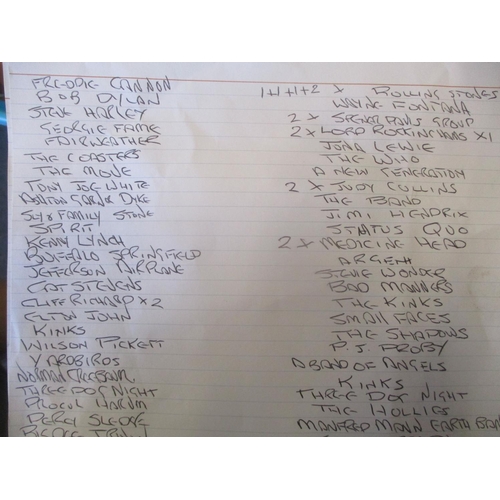 FREDDIE CANNON
BOB DYLAN
STEVE HARLEY
GEORGIE FAME
FAIRWEATHER
THE COASTERS
THE MOVE
TONY JOE WHITE
ASHTON GARDNER DYKE
SLY & FAMILY STONE
SPIRIT
KENNY LYNCH
BUFFALO SPRINGFIELD
JEFFERSON AIRPLANE
CAT STEVENS
CLIFF RICHARD X 2
ELTON JOHN
KINKS
WILSON PICKETT
YARDBIRDS
NORMAN GREENBAUM
THREE DOG NIGHT
PROCUL HARUM
PERCY SLEDGE
1+1+1+2 X ROLLING STONES
WAYNE FONTANA
2 X SPENCER DAVIS GROUP
2 X LORD ROCKINGHAMS X1
JONA LEWIE
THE WHO
A NEW GENERATION
2 X JUDY COLLINS
THE BAND
JIMI HENDRIX
STATUS QUO
2 X MEDICINE HEAD
ARGENT
STEVIE WONDER
BAD MANNERS
THE KINKS
SMALL FACES
THE SHADOWS
P.J. PROBY
A BAND OF ANGELS
KINKS
THREE DOG NIGHT
THE HOLLIES
MANFRED MANN EARTH BAND